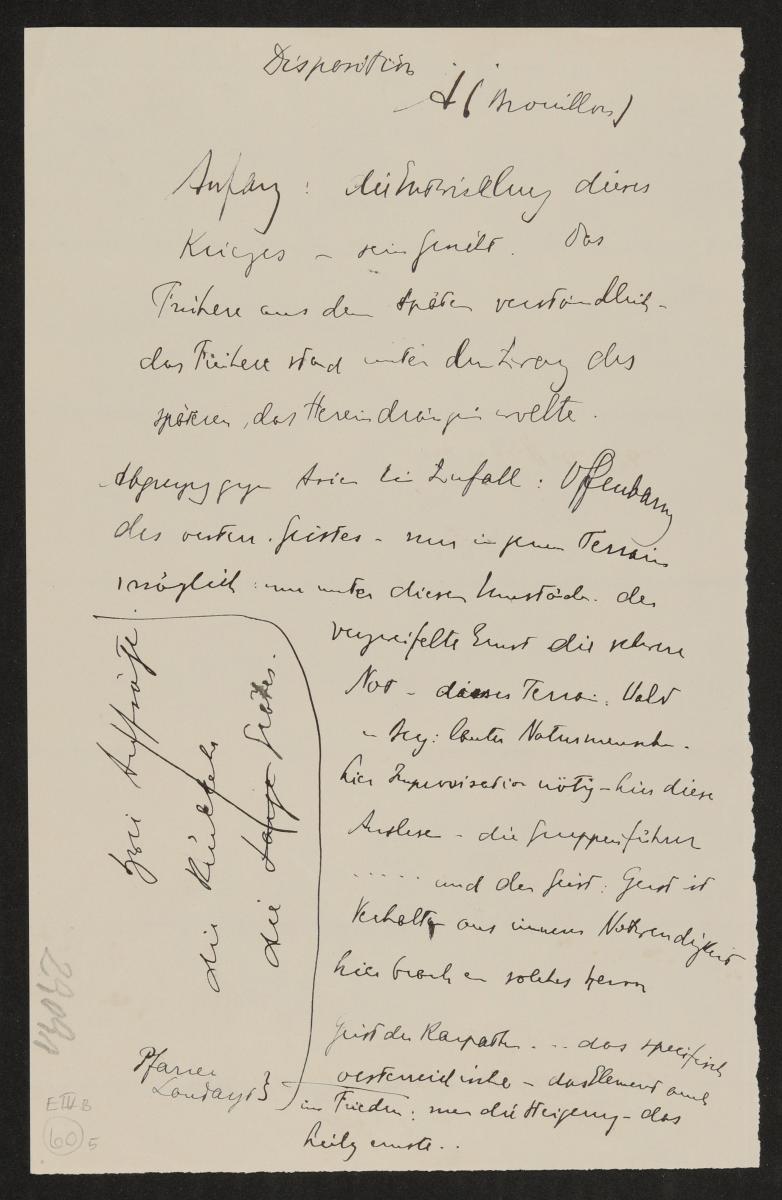 Disposition
A (Brouillon)
Anfang: die Entwicklung dieses
Krieges – sein Gesicht. Das
Frühere aus dem Späten verständlich –
das Frühere stand unter dem Zwang des
späteren, das Hereindrängen wollte.
gegen Asien kein Zufall: Offenbarung
des oesterr. Geistes – nur in jenem Terrain
möglich: nur unter diesen Umständen. der
verzweifelte Ernst die schwere
Not – dieses Terrain: Wald
u Berg: lauter Naturmenschen.
hier Improvisation nötig – hier diese
Auslese – die Gruppenführer
. . . . . und der Geist: Geist ist
Verhalten aus innerer Notwendigkeit
hier brach ein solches hervor
Geist der Karpathen . . . das specifisch
oesterreichische – das Element auch
im Frieden: nur die Steigerung – das
heilig ernste . .
zwei Aufsätze:
die Karpathen
die
Pfarrer
E IV B
60 5